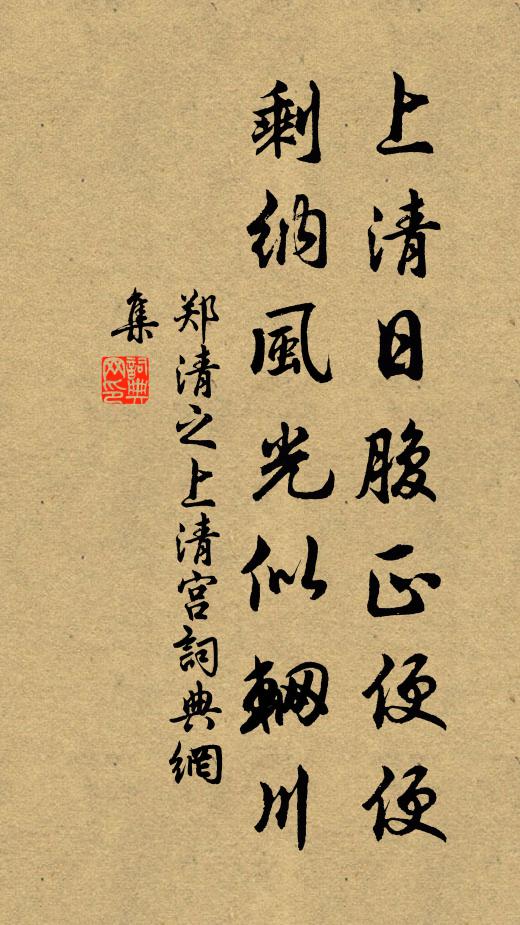 上清日腹正便便
剩纳風光似輞川
郑清之上清宫詞典網
集
詞典网印